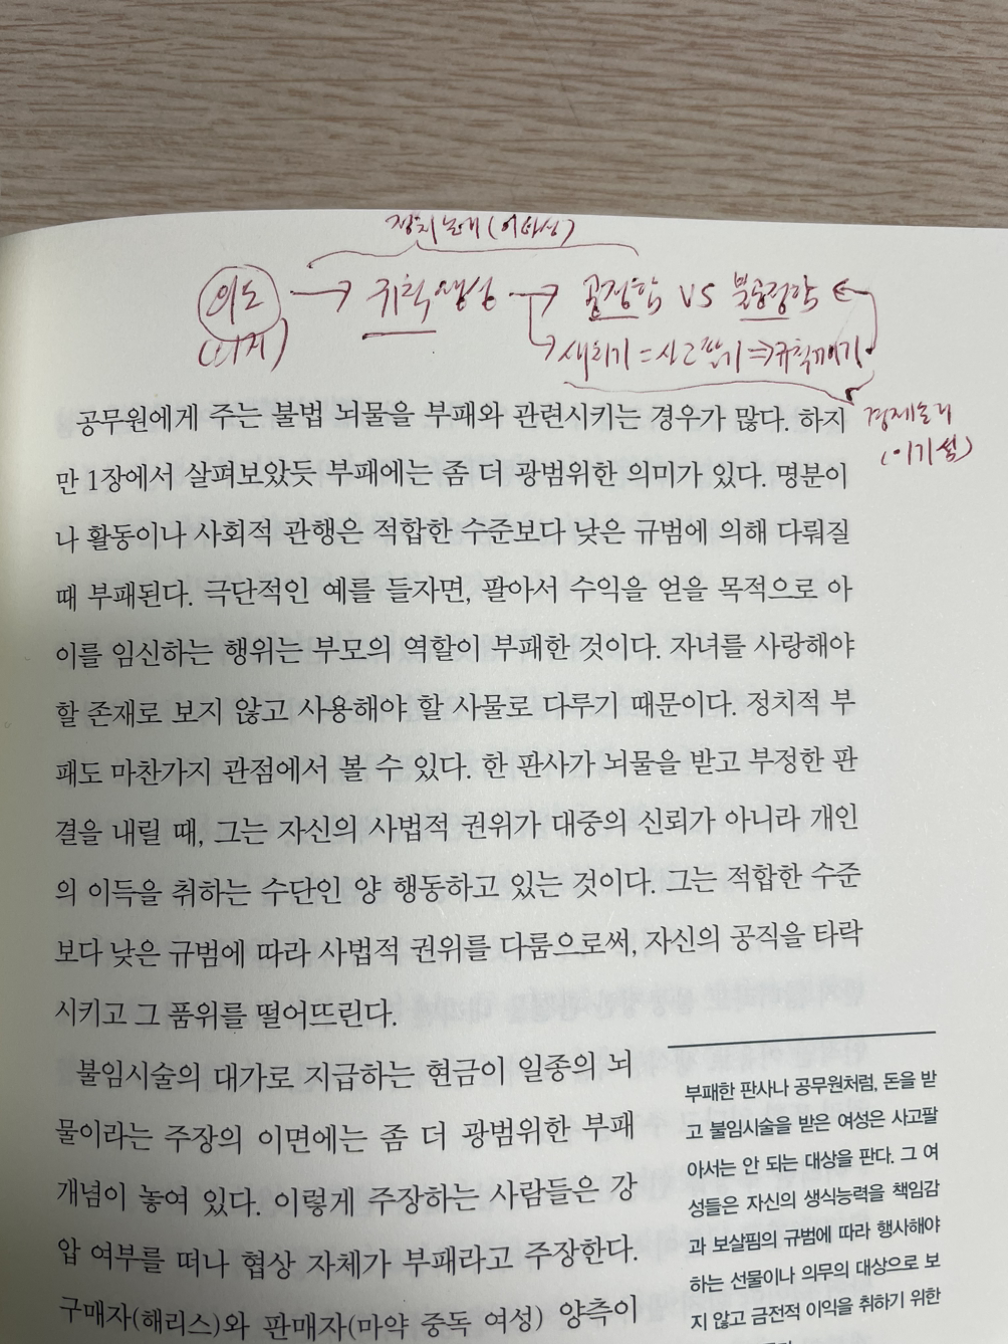 정치논리(이타성)
의도 → 규칙생성 → 공정함 VS 불공정함 ←
(의지) 새치기 = 사고팔기 ⇒ 규칙깨기
경제논리
(이기성)
공무원에게 주는 불법 뇌물을 부패와 관련시키는 경우가 많다. 하지
만 1장에서 살펴보았듯 부패에는 좀 더 광범위한 의미가 있다. 명분이
나 활동이나 사회적 관행은 적합한 수준보다 낮은 규범에 의해 다뤄질
때 부패된다. 극단적인 예를 들자면, 팔아서 수익을 얻을 목적으로 아
이를 임신하는 행위는 부모의 역할이 부패한 것이다. 자녀를 사랑해야
할 존재로 보지 않고 사용해야 할 사물로 다루기 때문이다. 정치적 부
패도 마찬가지 관점에서 볼 수 있다. 한 판사가 뇌물을 받고 부정한 판
결을 내릴 때, 그는 자신의 사법적 권위가 대중의 신뢰가 아니라 개인
의 이득을 취하는 수단인 양 행동하고 있는 것이다. 그는 적합한 수준
보다 낮은 규범에 따라 사법적 권위를 다룸으로써, 자신의 공직을 타락
시키고 그 품위를 떨어뜨린다.
불임시술의 대가로 지급하는 현금이 일종의 뇌
물이라는 주장의 이면에는 좀 더 광범위한 부패
개념이 놓여 있다. 이렇게 주장하는 사람들은 강
압 여부를 떠나 협상 자체가 부패라고 주장한다.
구매자(해리스)와 판매자(마약 중독 여성) 양측이
부패한 판사나 공무원처럼, 돈을 받
고 불임시술을 받은 여성은 사고팔
아서는 안 되는 대상을 판다. 그 여
성들은 자신의 생식능력을 책임감
과 보살핌의 규범에 따라 행사해야
하는 선물이나 의무의 대상으로 보
지 않고 금전적 이익을 취하기 위한